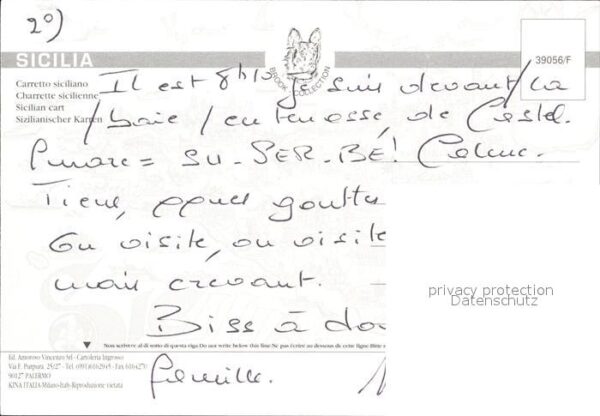 2°)
SICILIA
39056/F
BROOK COLLECTION
Carretto siciliano
Charrette sicilienne
Sicilian cart
Sizilianischer Karren
Il est 8h10 je suis devant/la
/baie/en terrasse, de Castel.
lmare = SU-PER-BE! Calme.
Tiens, quel goutte
On visite, on visite
mais crevant.
Biss à
famille.
privacy protection
Datenschutz
Non scrivere al di sotto di questa riga Do not write below this line Ne pas écrire au dessous de cette ligne Bitte
Ed. Amoroso Vincenzo Srl - Cartoleria Ingrosso
Via F. Purpura 25/27 - Tel. (091) 6162945 - Fax 6164270
90127 PALERMO
KINA ITALIA-Milano-Italy-Riproduzione vietata